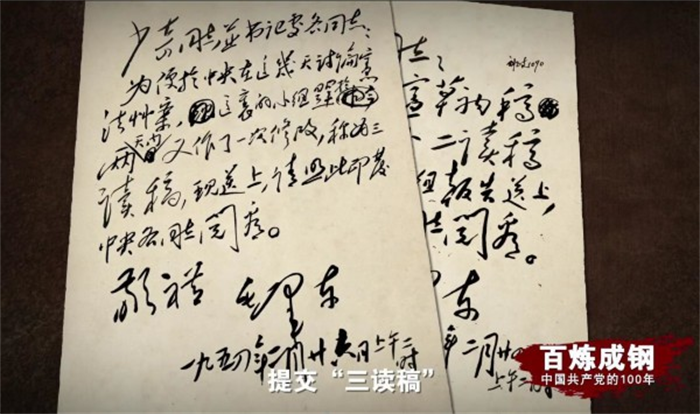 少奇同志并书记处各同志：
为便于中央在这几天讨论宪
法草案，这里的小组
两天内又作了一次修改，称为三
读稿，现送上，请照此印发
中央各同志阅看。
敬礼
毛泽东
一九五四年二月廿六日上午二时
志：
宪草初稿
二读稿
组报告送上，
阅看。
东
年二月廿四
上午二时
提交“三读稿”
百炼成钢
中国共产党的100年